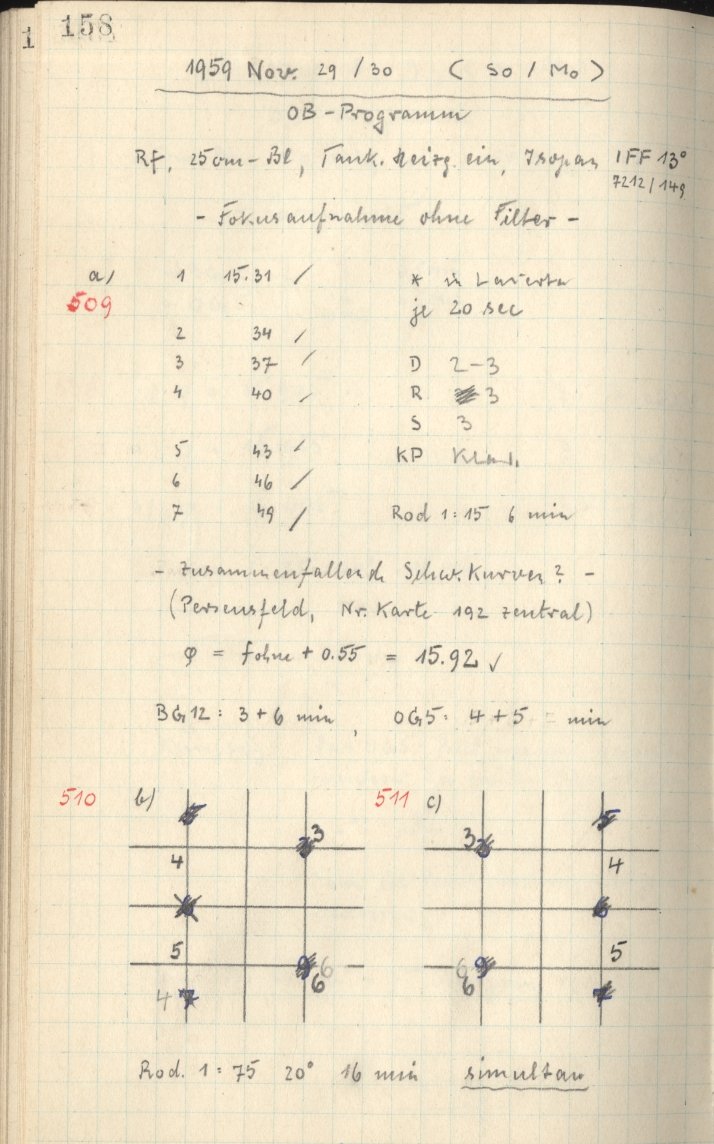 1
158
1959 Nov. 29 / 30 ( So / Mo )
OB-Programm
Rf, 25cm-Bl, Tank. Heizg. ein, Isopan IFF 13°
7212/149
- Fokusaufnahme ohne Filter -
a) 1 15.31 / * in Lacerta
509 je 20 sec
2 34 /
3 37 / D 2-3
4 40 / R 3
S 3
5 43 / KP Klar.
6 46 /
7 49 / Rod 1:15 6 min
- Zusammenfallende Schw. Kurven? -
(Perseusfeld, Nr. Karte 192 zentral)
φ = fohne + 0.55 = 15.92 ✓
BG12: 3 + 6 min, OG5: 4 + 5 = min
510 b) 511 c)
3 3
4 4
5 5
6 6
4 6 6
Rod. 1:75 20° 16 min simultan